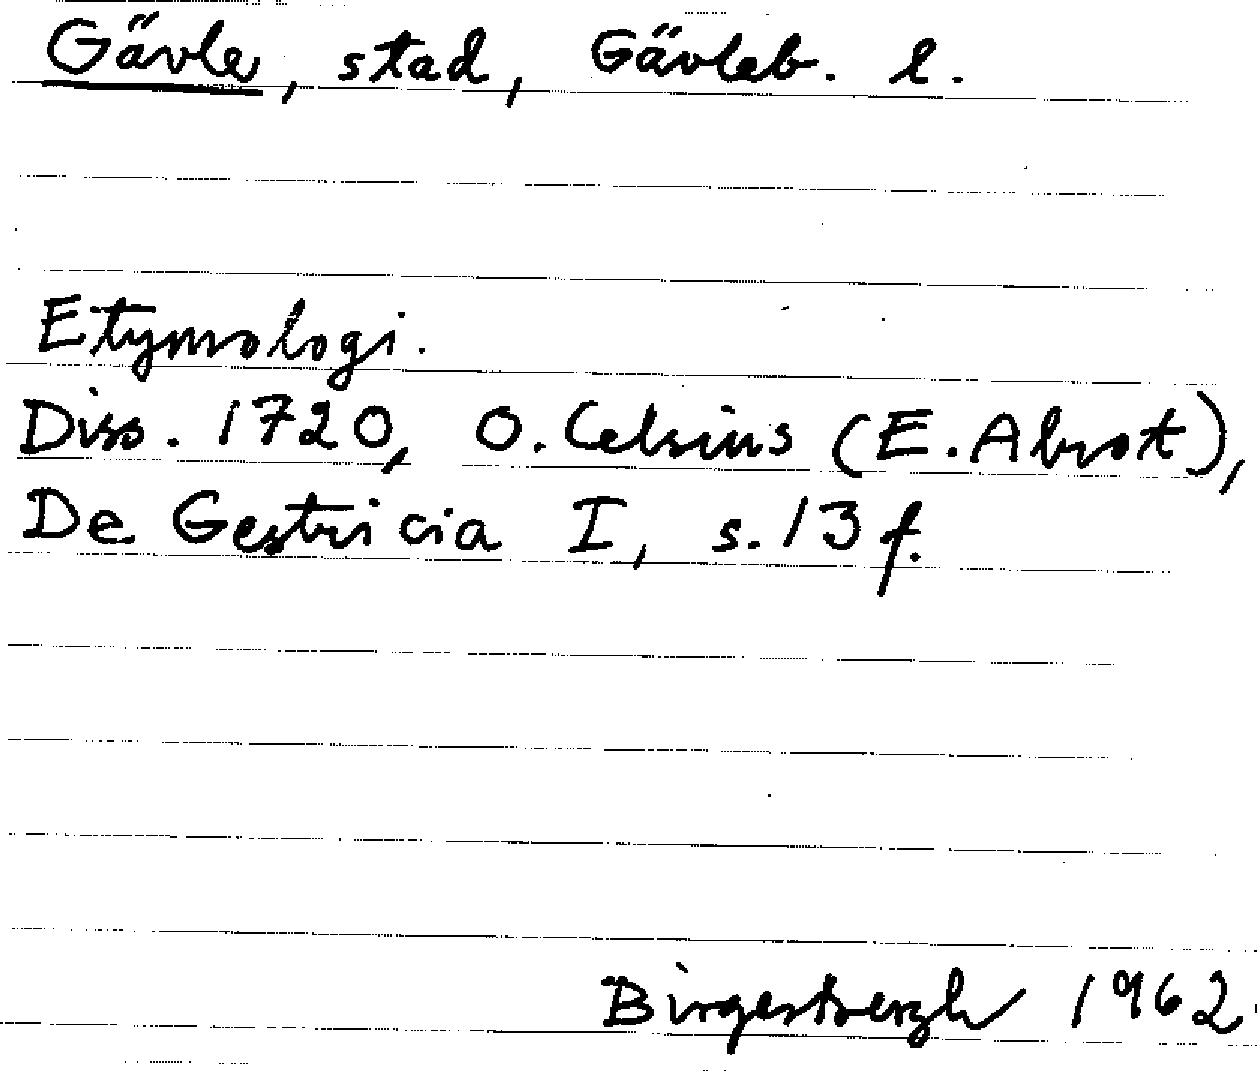 Gävle, stad, Gävleb. l.
Etymologi.
Diss. 1720, O. Celsius (E. Abrot),
De Gestricia I, s. 13 f.
1962